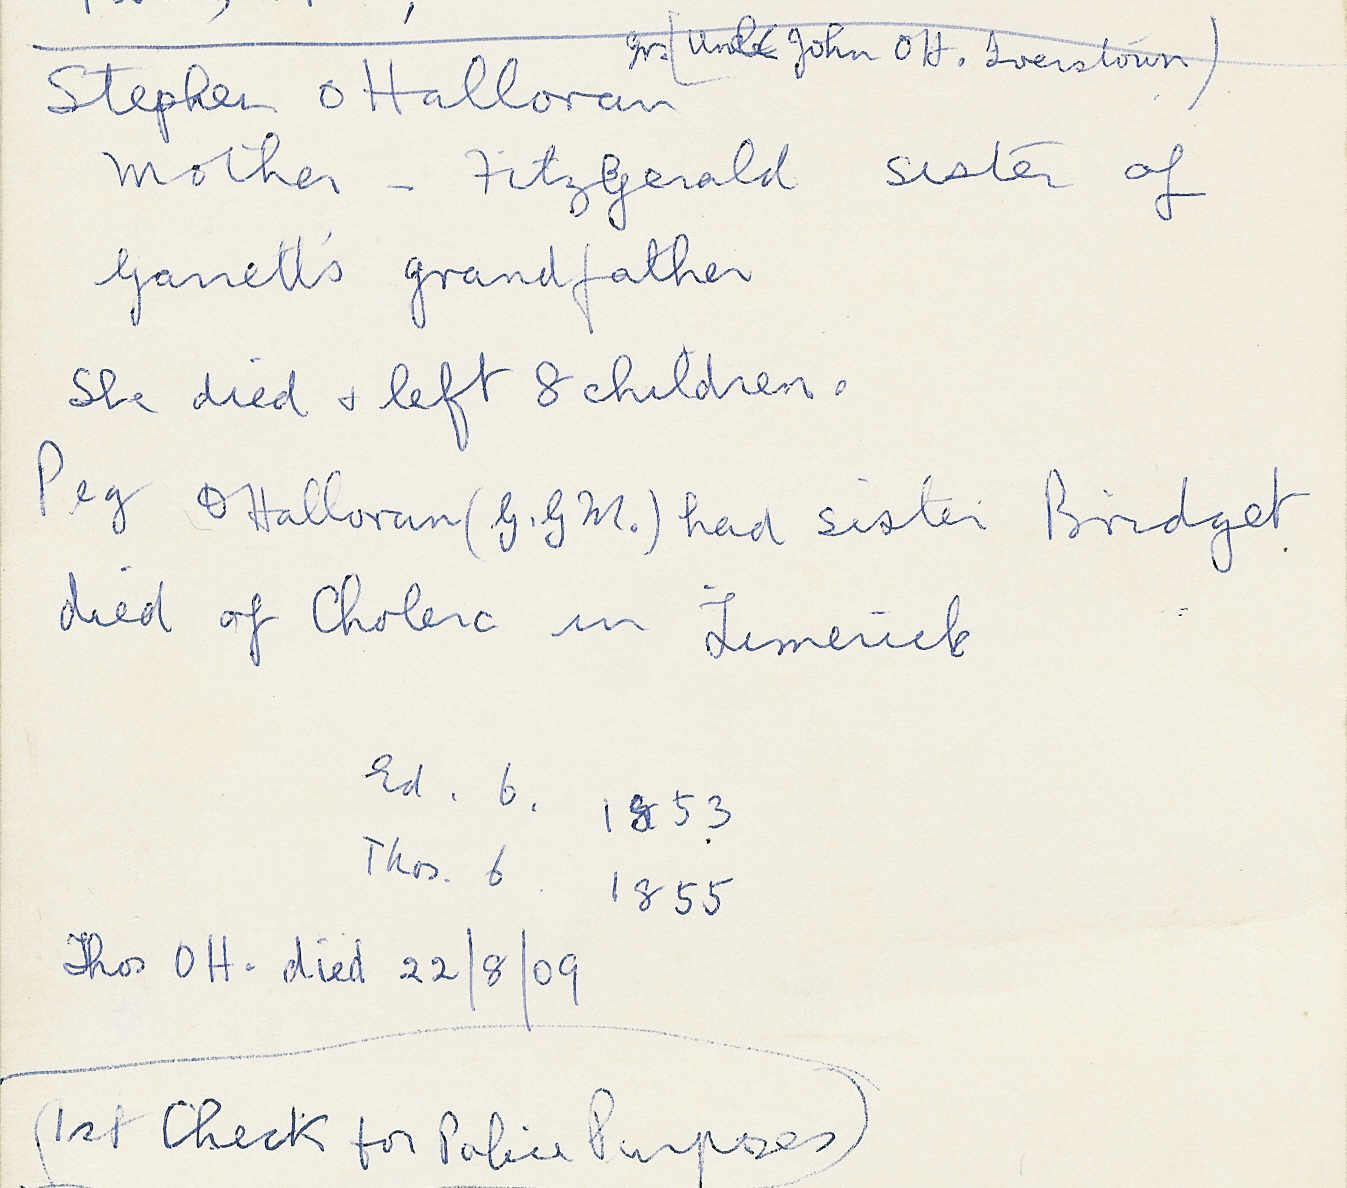 (Uncle John OH. Iverstown)
Stephen O Halloran
Mother - FitzGerald sister of
Garrett's grandfather
She died & left 8 children.
Peg O Halloran (G.G.M.) had sister Bridget
died of Cholera in Limerick
Ed. b. 1853
Thos. b. 1855
Thos OH. died 22/8/09
(1st Check for Police Purposes)